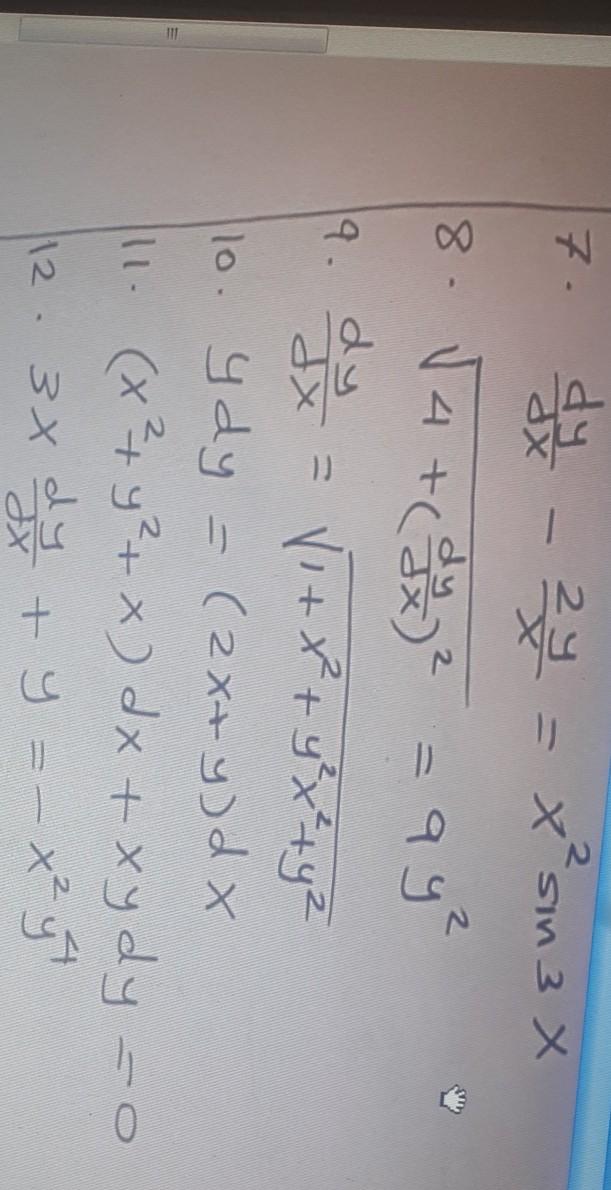 7. dy/dx - 2y/x = x² sin 3x
8. √(4 + (dy/dx)²) = 9y²
9. dy/dx = √(1 + x² + y²x² + y²)
10. y dy = (2x + y) dx
11. (x² + y² + x) dx + xy dy = 0
12. 3x dy/dx + y = - x²y⁴